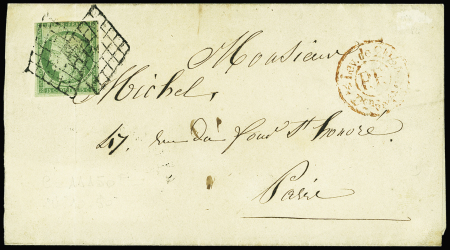 Monsieur
Michel,
47, rue du four St honoré
Paris